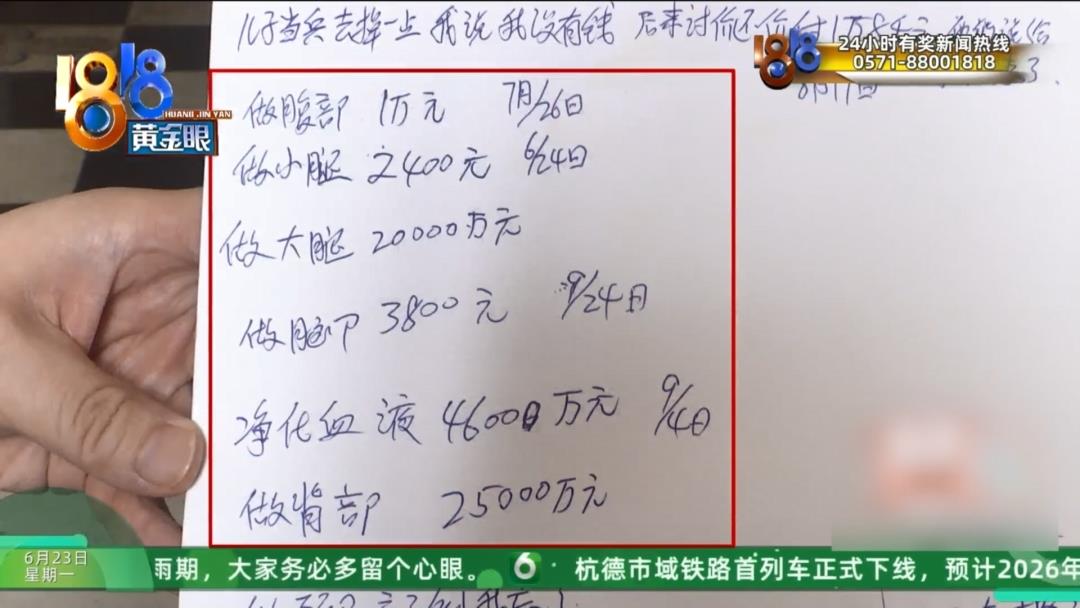 儿子当兵去掉一点 我说我没有钱 后来讨价还价付1万8千元
24小时有奖新闻热线
0571-88001818
8月17日
1818
HUANG JIN YAN
黄金眼
做腹部 1万元 7月/26日
做小腿 2400元 6/24日
做大腿 20000万元
做脑下 3800元 9/24日
净化血液 46000万元 9/4日
做背部 25000万元
6月23日
星期一
雨期，大家务必多留个心眼。 6 杭德市域铁路首列车正式下线，预计2026年